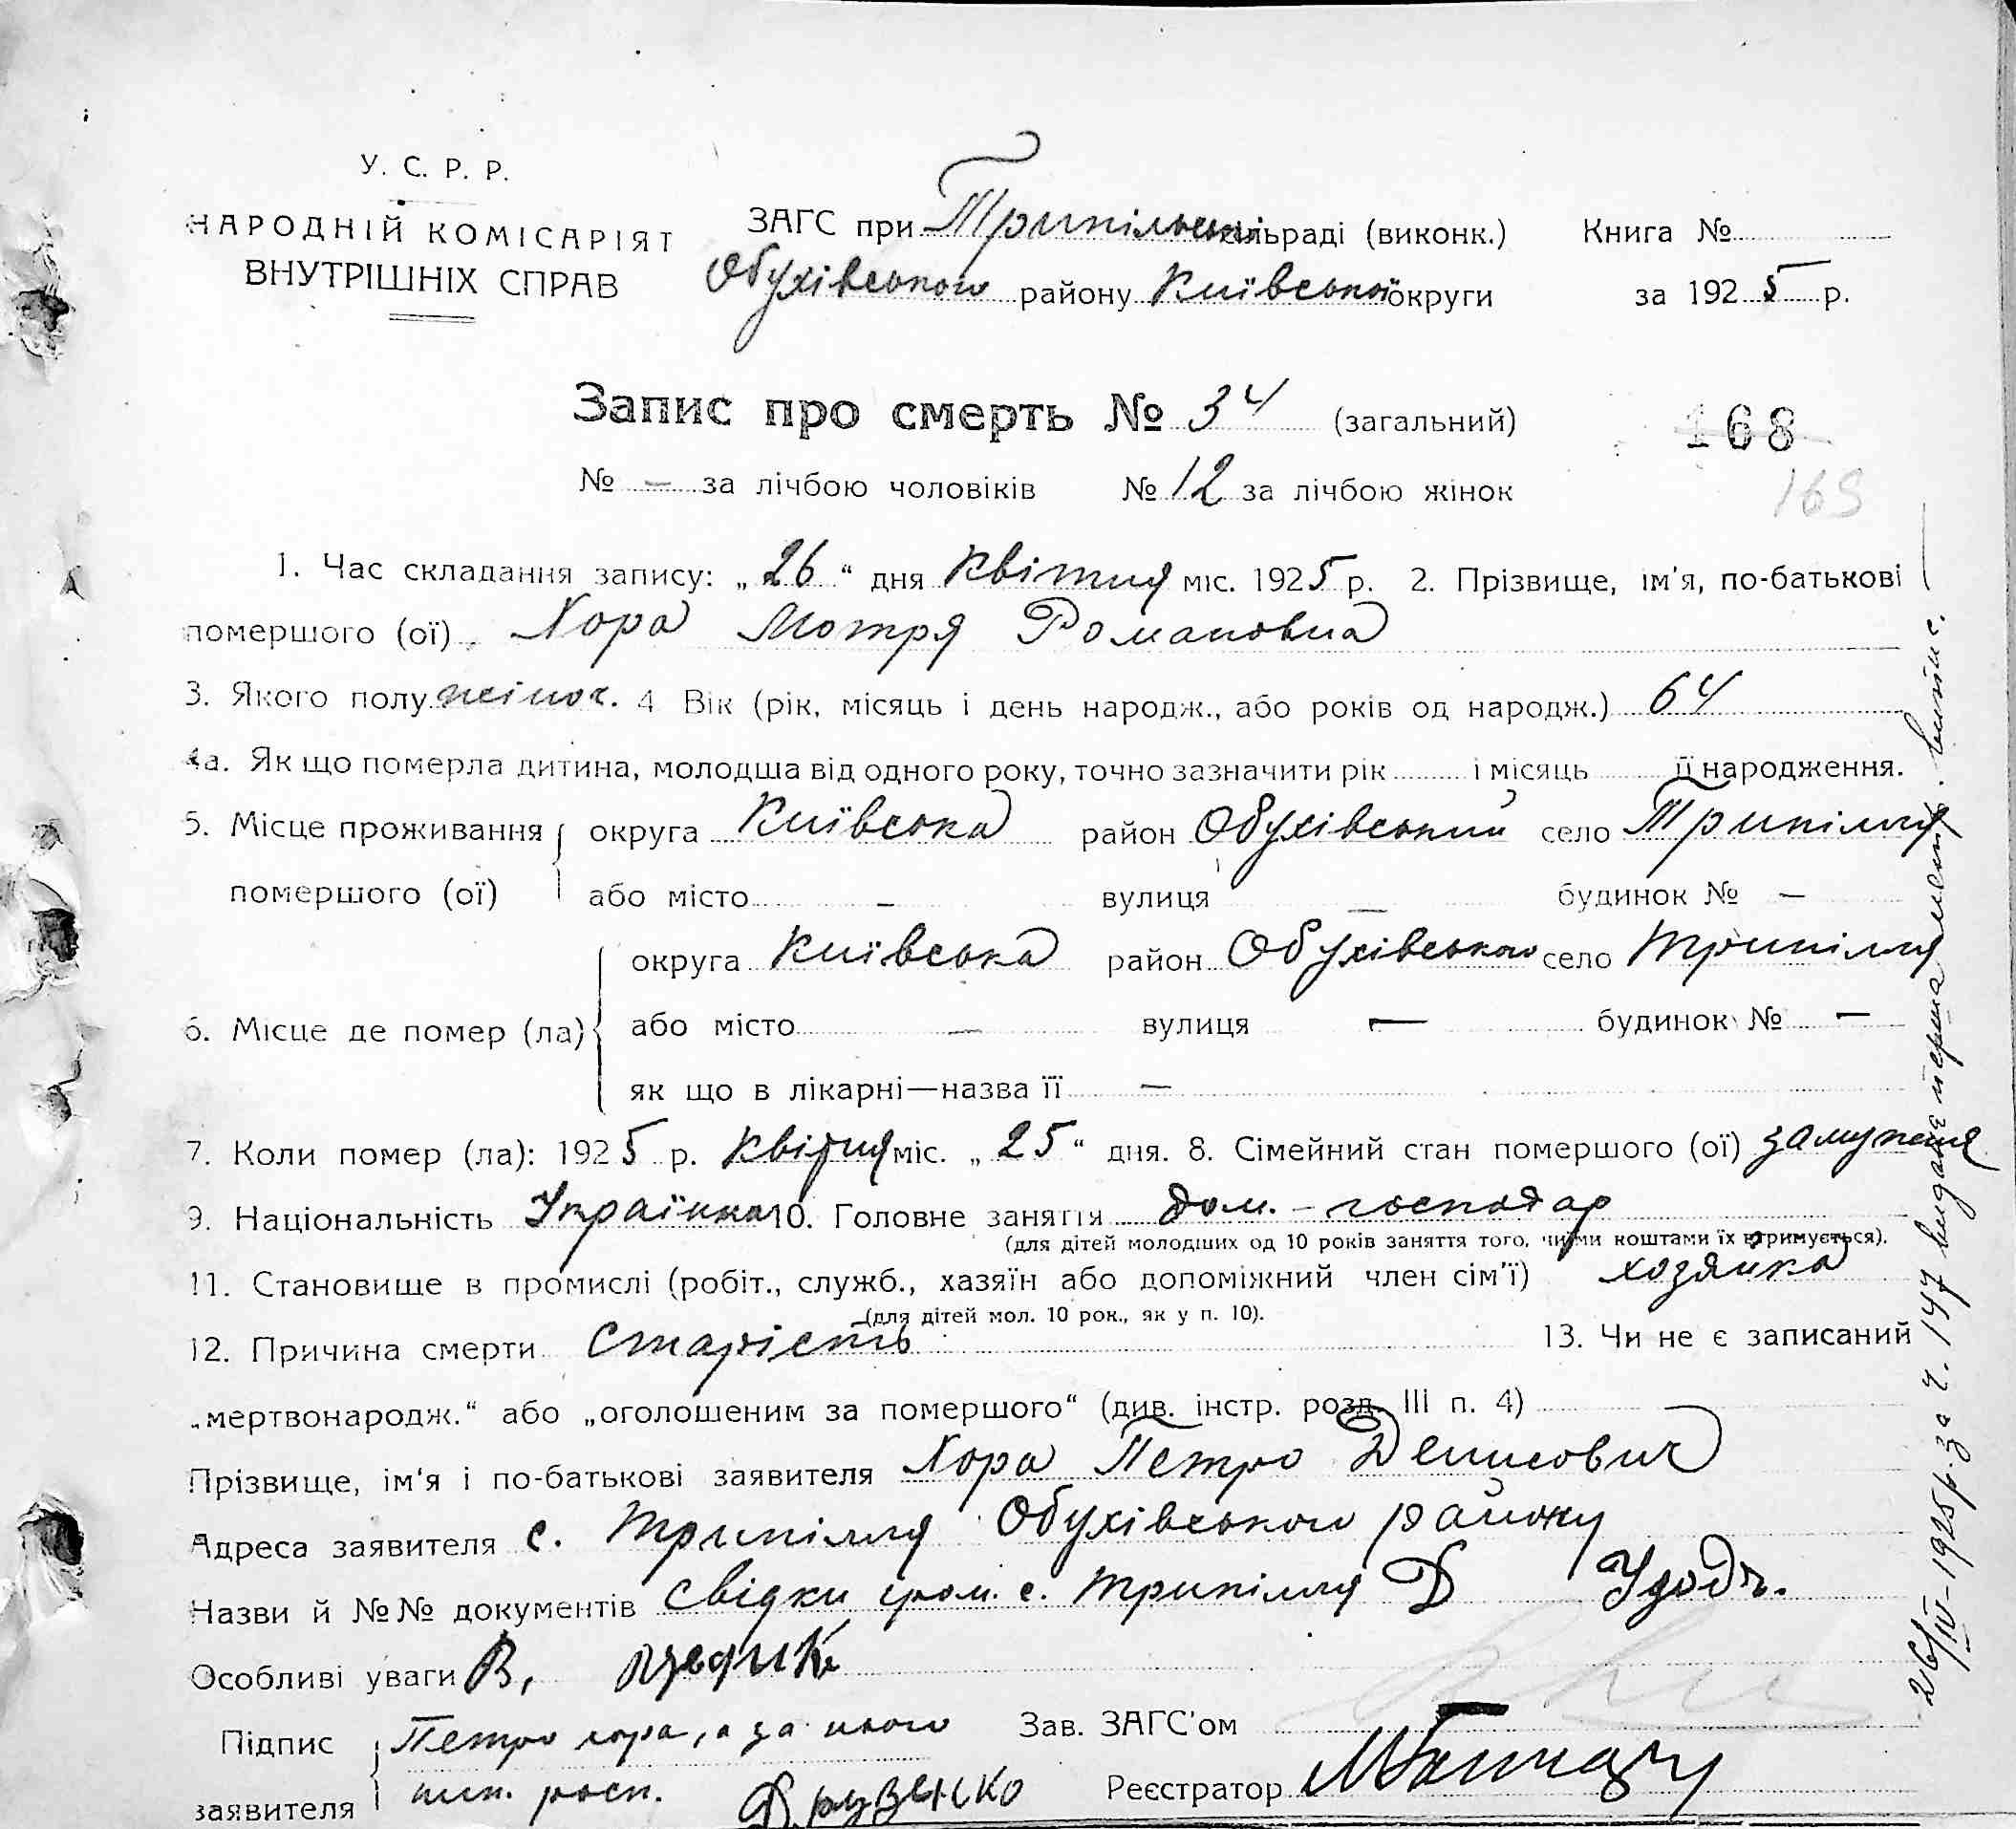 У. С. Р. Р.
НАРОДНІЙ КОМІСАРІЯТ
ВНУТРІШНІХ СПРАВ
ЗАГС при Трипільській сільраді (виконк.)
Обухівського району Київської округи
Книга №
за 1925 р.
Запис про смерть № 34 (загальний)
168
№ — за лічбою чоловіків № 12 за лічбою жінок
169
1. Час складання запису: „26“ дня Квітня міс. 1925 р. 2. Прізвище, ім'я, по-батькові
помершого (ої) Хора Мотря Романовна
3. Якого полу жіноч. 4 Вік (рік, місяць і день народж., або років од народж.) 64
4а. Як що померла дитина, молодша від одного року, точно зазначити рік і місяць її народження.
5. Місце проживання округа Київська район Обухівський село Трипілля
помершого (ої) або місто — вулиця — будинок № —
округа Київська район Обухівського село Трипілля
6. Місце де помер (ла) або місто — вулиця — будинок № —
як що в лікарні—назва її —
7. Коли помер (ла): 1925 р. Квітня міс. „25“ дня. 8. Сімейний стан помершого (ої) замужня
9. Національність Українка 10. Головне заняття дом. - господар
(для дітей молодших од 10 років заняття того, чиїми коштами їх втримується).
11. Становище в промислі (робіт., служб., хазяїн або допоміжний член сім'ї) хозяйка
(для дітей мол. 10 рок., як у п. 10).
12. Причина смерти Старість 13. Чи не є записаний
„мертвонародж.“ або „оголошеним за помершого“ (див. інстр. розд. III п. 4)
Прізвище, ім'я і по-батькові заявителя Хора Петро Денисович
Адреса заявителя с. Трипілля Обухівського району
Назви й №№ документів Свідки гром. с. Трипілля Д Удодъ.
Особливі уваги В,
Підпис Петро Хора, а за нього Зав. ЗАГС'ом
заявителя росп. Друзенко Реєстратор
26/IV-1925 р. за ч. 147 видане перша випис.